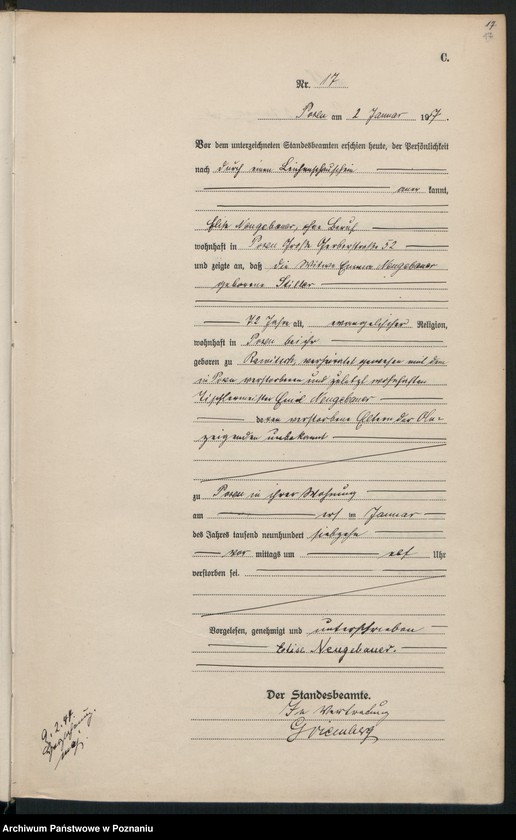 17
17
C.
Nr. 17
Posen am 2 Januar 1917.
Vor dem unterzeichneten Standesbeamten erschien heute, der Persönlichkeit
nach durch einen Leichenschauschein
aner kannt,
Elise Neugebauer, ohne Beruf
wohnhaft in Posen Große Gerberstraße 52
und zeigte an, daß die Witwe Emma Neugebauer
geborene Stiller
72 Jahre alt, evangelischer Religion,
wohnhaft in Posen bei ihr
geboren zu Rawitsch, verheiratet gewesen mit dem
in Posen verstorbenen und zuletzt wohnhaften
Tischlermeister Emil Neugebauer
deren verstorbene Eltern der An-
zeigenden unbekannt
zu Posen in ihrer Wohnung
am ersten Januar
des Jahres tausend neunhundert siebzehn
vor mittags um elf Uhr
verstorben sei.
Vorgelesen, genehmigt und unterschrieben
Elise Neugebauer.
Der Standesbeamte.
In Vertretung
9.2.44.
Archiwum Państwowe w Poznaniu